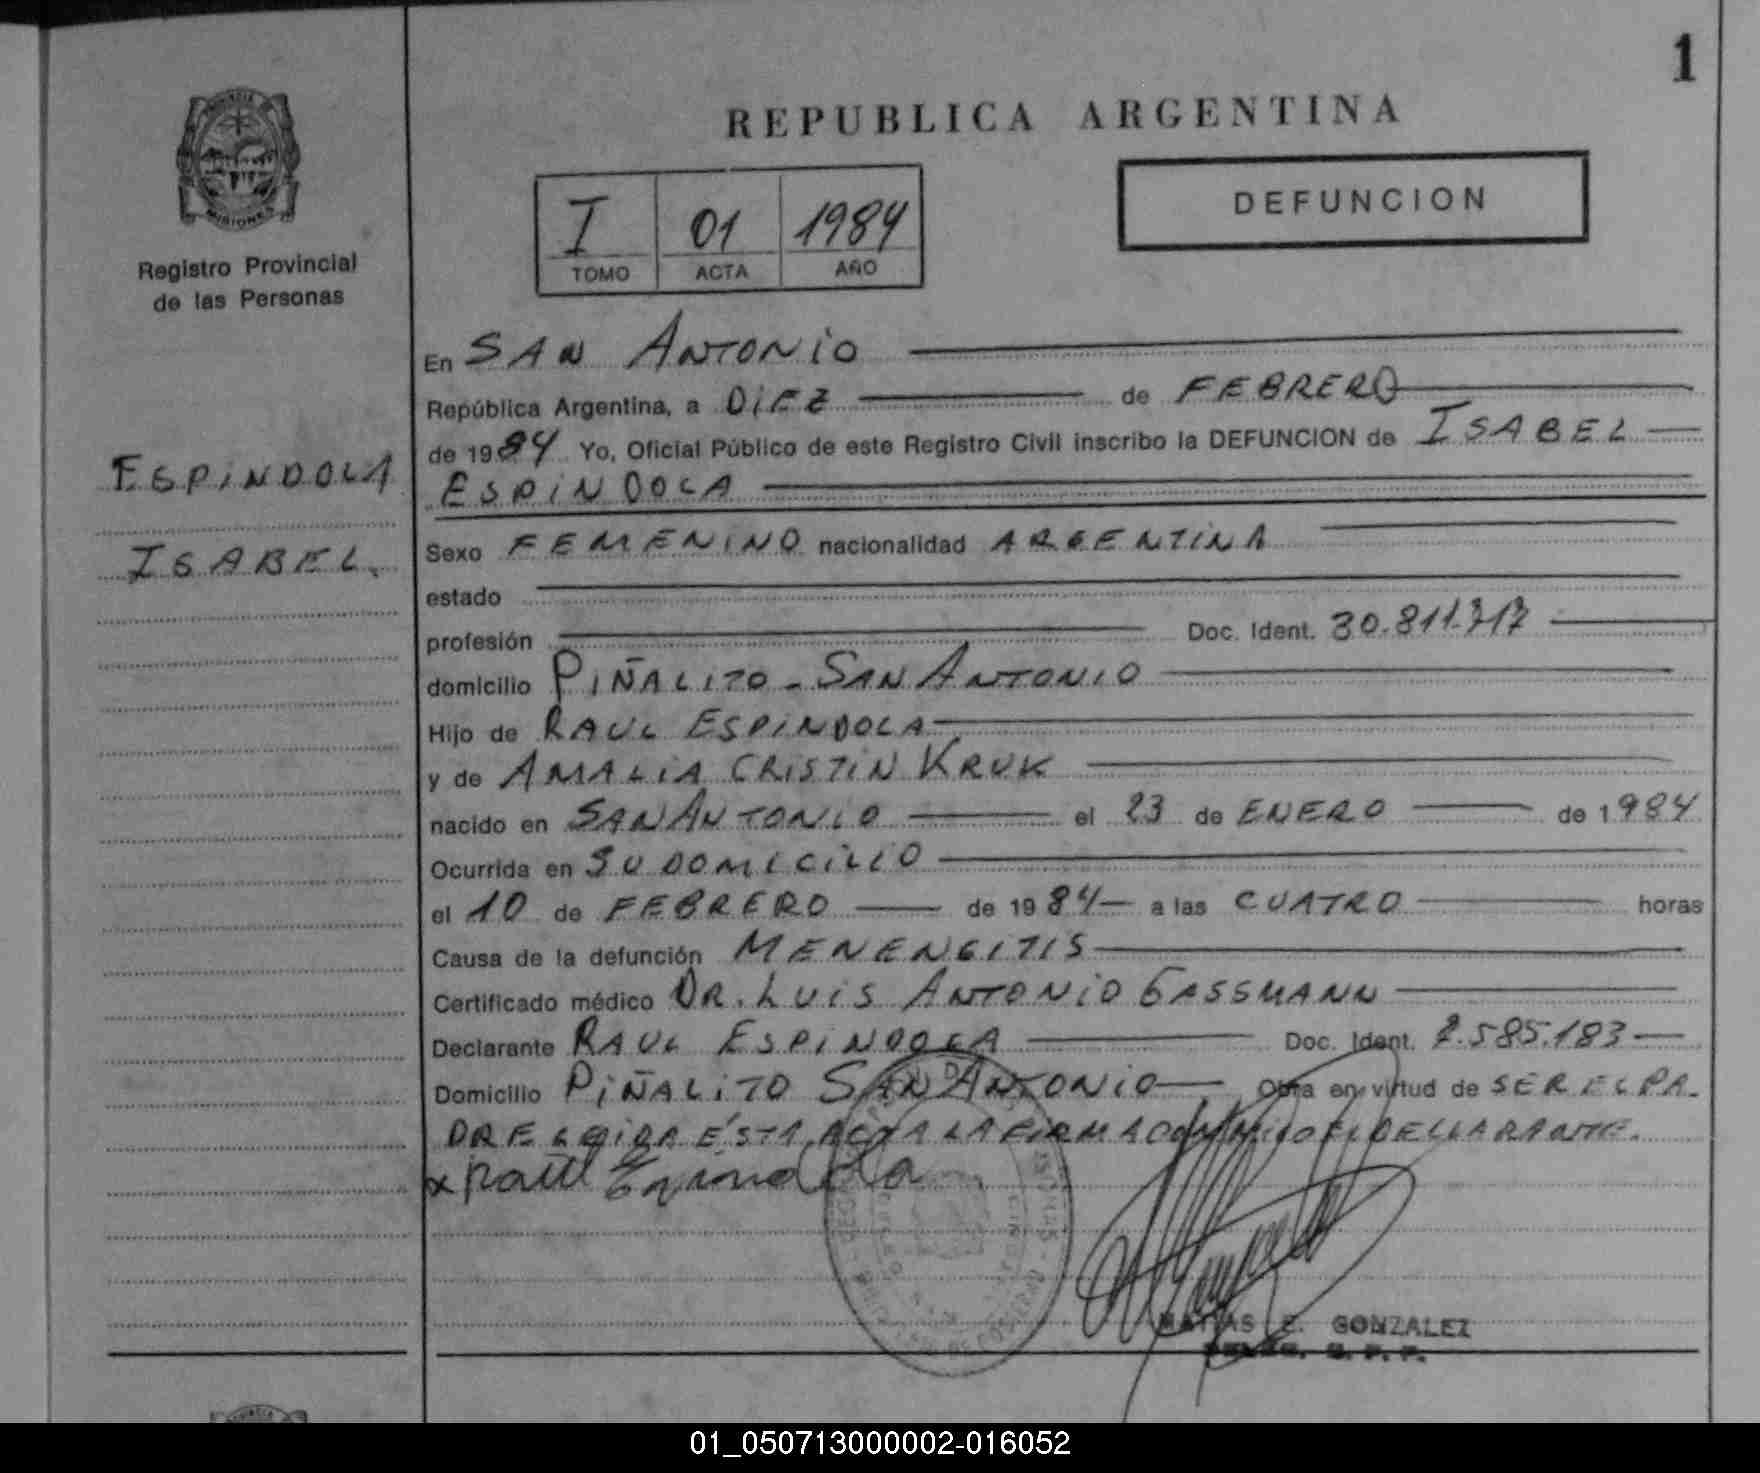 1
REPUBLICA ARGENTINA
PROVINCIA DE
MISIONES
Registro Provincial
de las Personas
I 01 1984
TOMO ACTA AÑO
DEFUNCION
ESPINDOLA
ISABEL.
En SAN ANTONIO
República Argentina, a DIEZ de FEBRERO
de 1984 Yo, Oficial Público de este Registro Civil inscribo la DEFUNCION de ISABEL
ESPINDOLA
Sexo FEMENINO nacionalidad ARGENTINA
estado
profesión Doc. Ident. 30.811.717
domicilio PIÑALITO - SAN ANTONIO
Hijo de RAUL ESPINDOLA
y de AMALIA CRISTIN KRUK
nacido en SAN ANTONIO el 23 de ENERO de 1984
Ocurrida en SU DOMICILIO
el 10 de FEBRERO de 1984 a las CUATRO horas
Causa de la defunción MENENGITIS
Certificado médico DR. LUIS ANTONIO GASSMANN
Declarante RAUL ESPINDOLA Doc. Ident. 8.585.183
Domicilio PIÑALITO SAN ANTONIO Obra en virtud de SER EL PA-
DRE LEIDA ÉSTA ACTA LA FIRMA CONMIGO EL DECLARANTE.
x Raul Espindola
MATIAS E. GONZALEZ
DELEG. R. P. P.
01_050713000002-016052